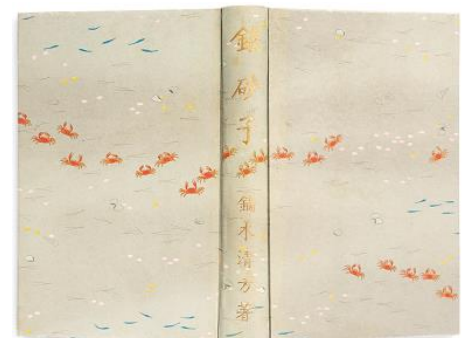 銀砂子
鏑木清方著